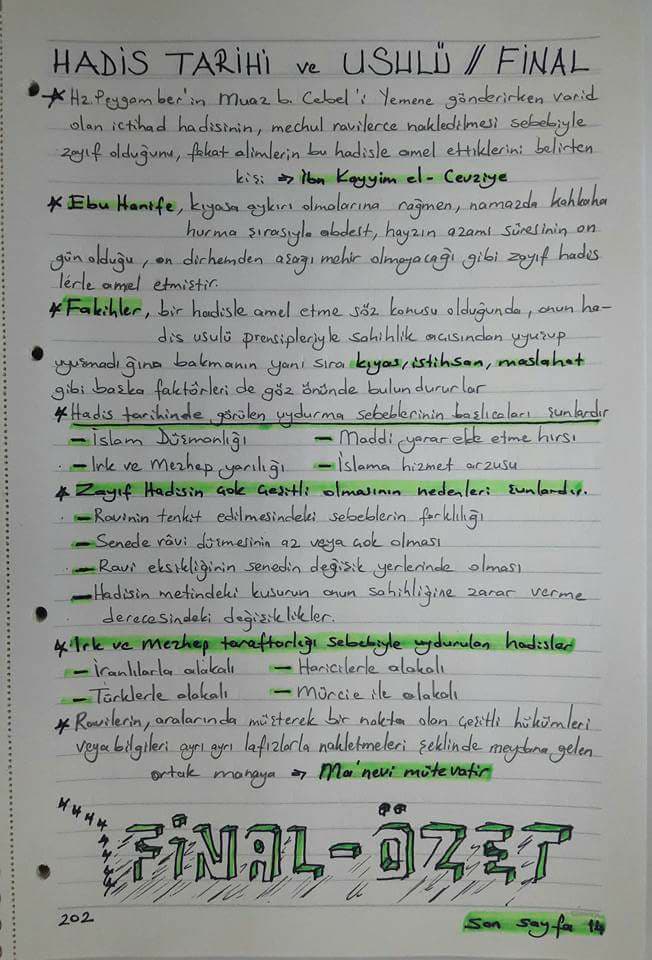 HADİS TARİHİ ve USULÜ // FİNAL
* Hz. Peygamber'in Muaz b. Cebel'i Yemene gönderirken varid
olan ictihad hadisinin, mechul ravilerce nakledilmesi sebebiyle
zayıf olduğunu, fakat alimlerin bu hadisle amel ettiklerini belirten
kişi => İbn Kayyim el-Cevziye
* Ebu Hanife, kıyasa aykırı olmalarına rağmen, namazda kahkaha
hurma şırasıyla abdest, hayzın azami süresinin on
gün olduğu, on dirhemden aşağı mehir olmayacağı gibi zayıf hadis
lerle amel etmiştir.
* Fakihler, bir hadisle amel etme söz konusu olduğunda, onun ha-
dis usulü prensipleriyle sahihlik açısından uyuşup
uyuşmadığına bakmanın yanı sıra kıyas, istihsan, maslahat
gibi başka faktörleri de göz önünde bulundururlar
* Hadis tarihinde görülen uydurma sebeblerinin başlıcaları şunlardır
- İslam Düşmanlığı - Maddi yarar elde etme hırsı
- Irk ve Mezhep yarılığı - İslama hizmet arzusu
* Zayıf Hadisin çok çeşitli olmasının nedenleri şunlardır.
- Ravinin tenkit edilmesindeki sebeblerin farklılığı
- Senede râvi düşmesinin az veya çok olması
- Ravi eksikliğinin senedin değişik yerlerinde olması
- Hadisin metindeki kusurun onun sahihliğine zarar verme
derecesindeki değişiklikler.
* Irk ve mezhep taraftarlığı sebebiyle uydurulan hadisler
- İranlılarla alakalı - Haricilerle alakalı
- Türklerle alakalı - Mürcie ile alakalı
* Ravilerin, aralarında müşterek bir nokta olan çeşitli hükümleri
veya bilgileri ayrı ayrı lafızlarla nakletmeleri şeklinde meydana gelen
ortak manaya => Ma'nevi mütevatir
FİNAL-ÖZET
202
son sayfa 14